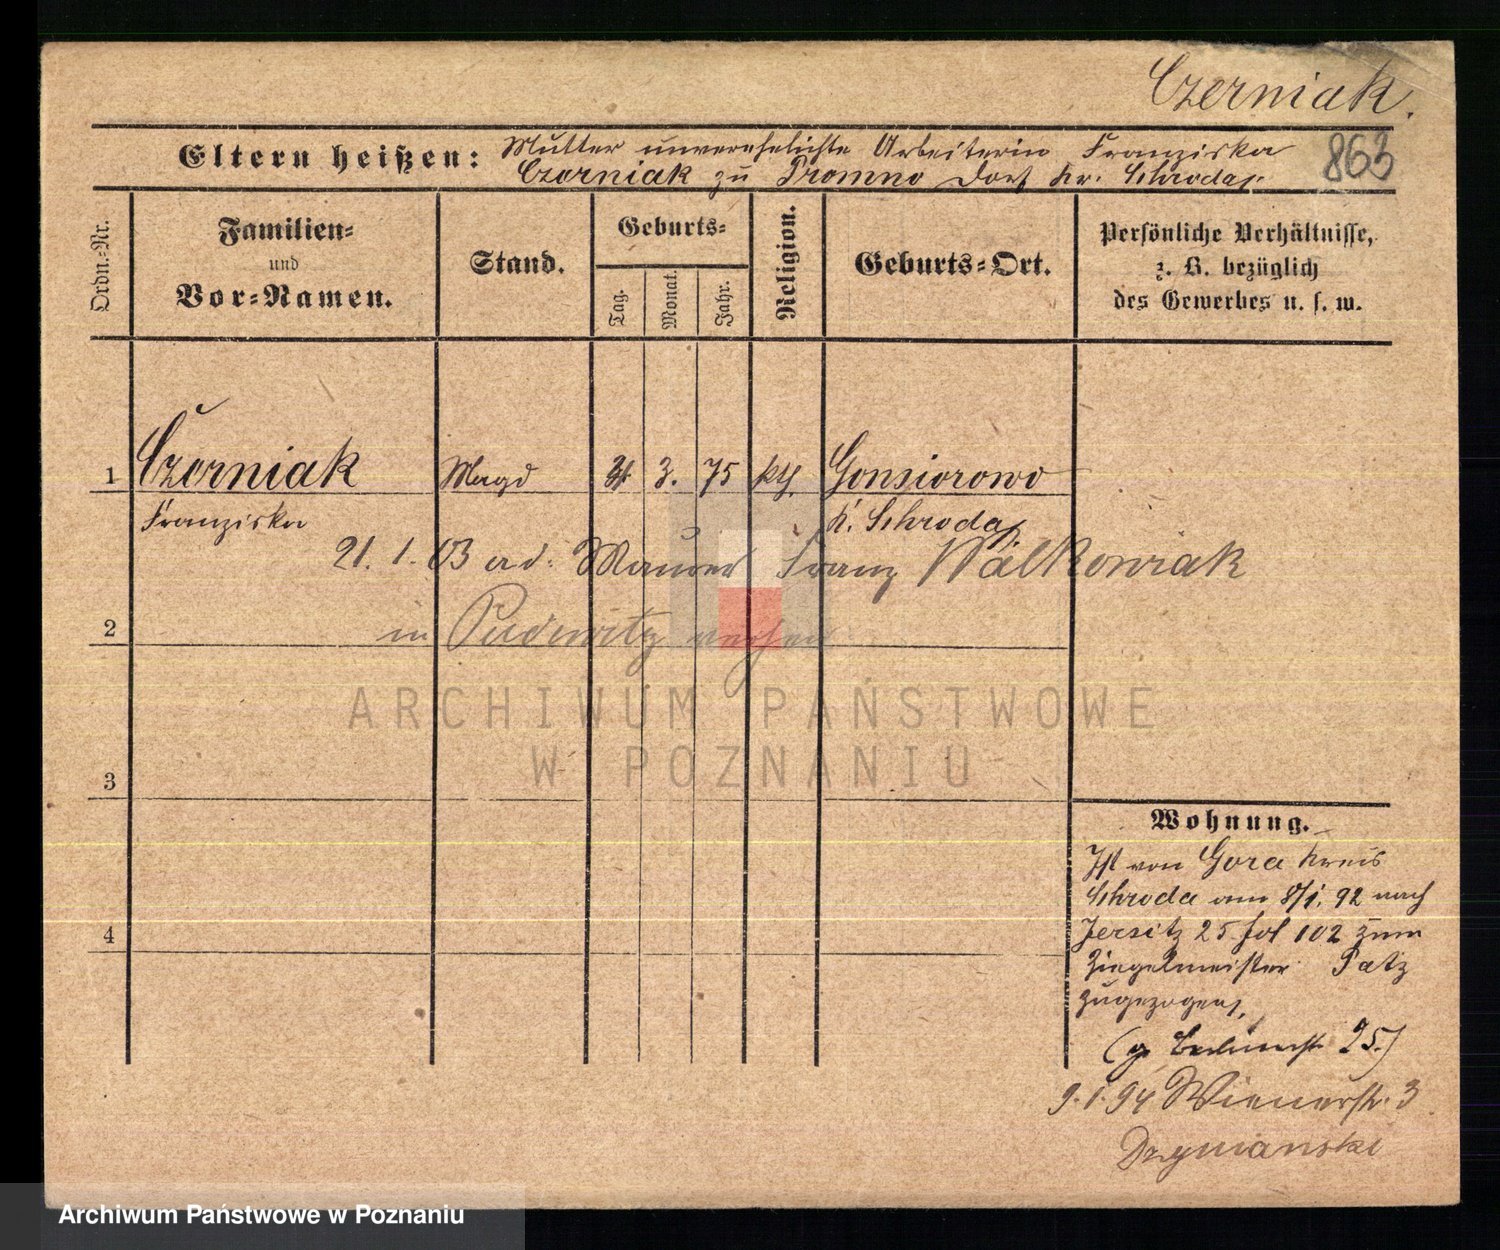 Czerniak.
Eltern heißen: Mutter unverehelichte Arbeiterin Franziska
Czerniak zu Promno Dorf Kr. Schroda.
863
Ordn.-Nr.
Familien-
und
Vor-Namen.
Stand.
Geburts-
Tag.
Monat.
Jahr.
Religion.
Geburts-Ort.
Persönliche Verhältnisse,
z. B. bezüglich
des Gewerbes u. s. w.
1 Czerniak Magd 3. 75 kth. Gonsiorowo
Franziska K. Schroda
21. 1. 03 ad: Maurer Franz Walkowiak
2 in Pudewitz
ARCHIWUM PAŃSTWOWE
W POZNANIU
3
4
Wohnung.
Ist von Gora Kreis
Schroda am 8/1. 92 nach
Jersitz 25 fol 102 zum
Ziegelmeister Patz
zugezogen.
25.)
9.1.94 Wienerstr. 3
Archiwum Państwowe w Poznaniu